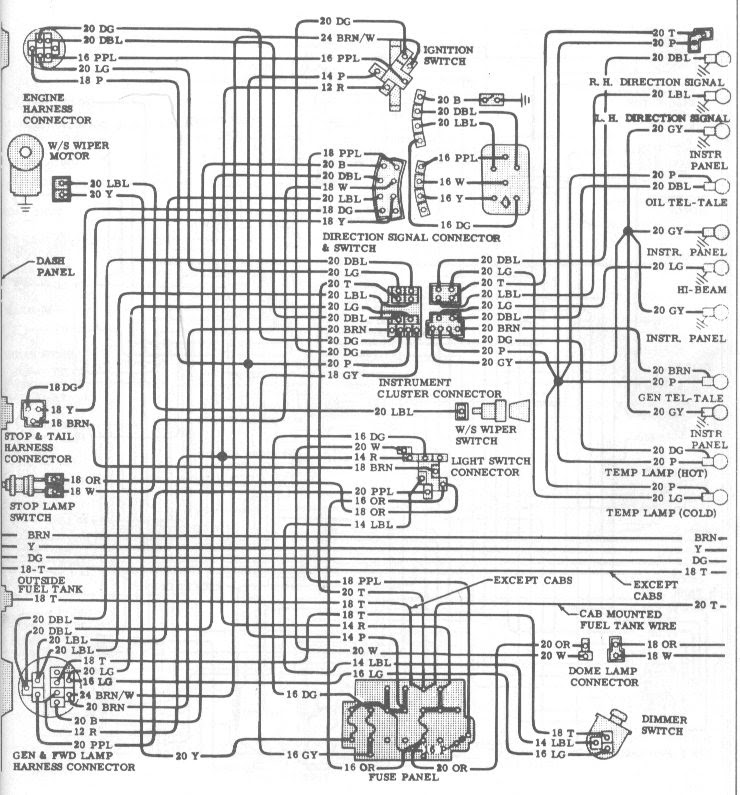 20 DG
20 DBL
16 PPL
20 LG
18 P
ENGINE
HARNESS
CONNECTOR
W/S WIPER
MOTOR
20 LBL
20 Y
DASH
PANEL
18 DG
18 Y
18 BRN
STOP & TAIL
HARNESS
CONNECTOR
18 OR
18 W
STOP LAMP
SWITCH
BRN
Y
DG
18-T
OUTSIDE
FUEL TANK
18 T
20 DBL
20 DBL
20 LBL
20 LBL
18 T
20 LG
16 LG
24 BRN/W
20 BRN
20 B
12 R
20 PPL
GEN & FWD LAMP
HARNESS CONNECTOR
20 Y
20 DG
24 BRN/W
16 PPL
14 P
12 R
IGNITION
SWITCH
20 B
20 DBL
20 LBL
18 PPL
20 B
20 DBL
18 W
20 LBL
18 DG
18 Y
16 PPL
16 W
16 Y
16 DG
DIRECTION SIGNAL CONNECTOR
& SWITCH
20 DBL
20 LG
20 T
20 LBL
20 LG
20 DBL
20 BRN
20 DG
20 DG
20 P
18 GY
20 DBL
20 LG
20 T
20 LBL
20 LG
20 DBL
20 BRN
20 DG
20 P
20 GY
INSTRUMENT
CLUSTER CONNECTOR
20 LBL
W/S WIPER
SWITCH
16 DG
20 W
14 R
18 BRN
20 PPL
16 OR
18 OR
14 LBL
LIGHT SWITCH
CONNECTOR
20 T
20 P
20 DBL
R. H. DIRECTION SIGNAL
20 LBL
L. H. DIRECTION SIGNAL
20 GY
INSTR
PANEL
20 P
20 DBL
OIL TEL-TALE
20 GY
INSTR. PANEL
20 LG
HI-BEAM
20 GY
INSTR. PANEL
20 BRN
20 P
GEN TEL-TALE
20 GY
INSTR
PANEL
20 DG
20 P
TEMP LAMP (HOT)
20 P
20 LG
TEMP LAMP (COLD)
BRN
Y
DG
18 T
EXCEPT CABS
EXCEPT
CABS
CAB MOUNTED
FUEL TANK WIRE
20 T
18 PPL
20 T
18 T
18 T
14 R
14 P
20 W
14 LBL
16 LG
16 DG
16 GY
16 OR
16 P
20 OR
FUSE PANEL
20 OR
20 W
18 OR
18 W
DOME LAMP
CONNECTOR
DIMMER
SWITCH
18 T
14 LBL
16 LG